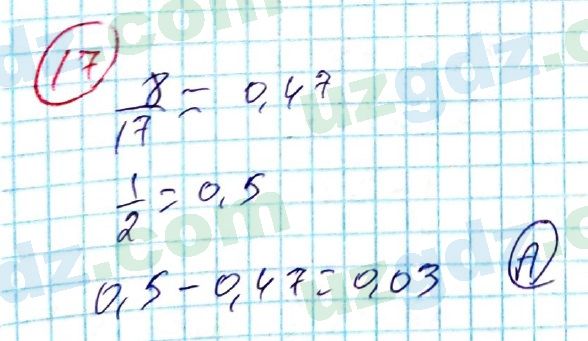 17
8/17 = 0,47
1/2 = 0,5
0,5 - 0,47 = 0,03 A
uzgdz.com